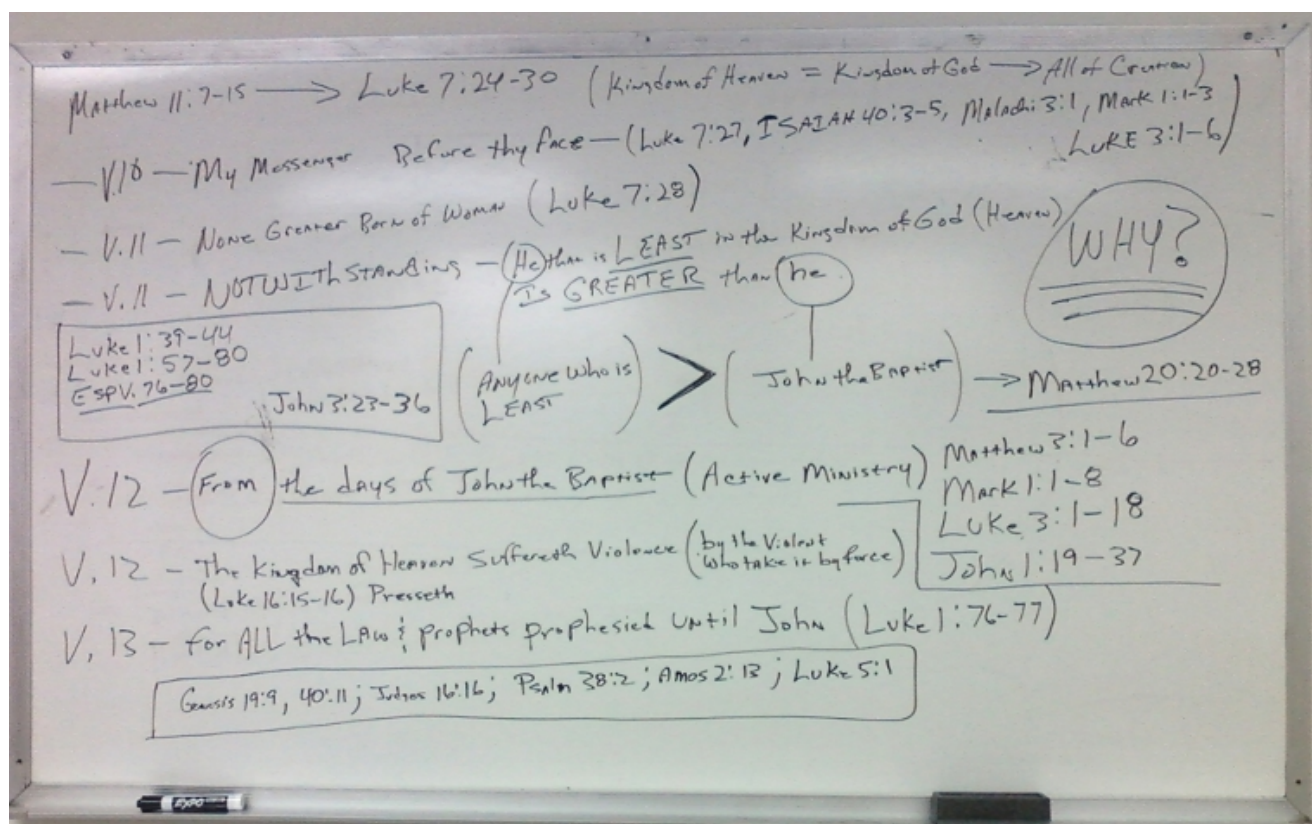 Matthew 11:7-15 → Luke 7:24-30 (Kingdom of Heaven = Kingdom of God → All of Creation)
— V.10 — My Messenger Before thy face — (Luke 7:27, ISAIAH 40:3-5, Malachi 3:1, Mark 1:1-3
LUKE 3:1-6)
— V.11 — None Greater Born of Woman (Luke 7:28)
— V.11 — NOTWITHSTANDING — He that is LEAST in the Kingdom of God (Heaven)
IS GREATER than he
WHY?
Luke 1:39-44
Luke 1:57-80
Esp V. 76-80
John 3:23-36
(ANYONE who is
LEAST) > (John the Baptist) → Matthew 20:20-28
V.12 — From the days of John the Baptist (Active Ministry)
Matthew 3:1-6
Mark 1:1-8
Luke 3:1-18
John 1:19-37
V.12 — The Kingdom of Heaven Suffereth Violence (by the Violent
who take it by force)
(Luke 16:15-16) Presseth
V.13 — for ALL the LAW & prophets prophesied until John (Luke 1:76-77)
Genesis 19:9, 40:11; Judges 16:16; Psalm 38:2; Amos 2:13; Luke 5:1
EXPO